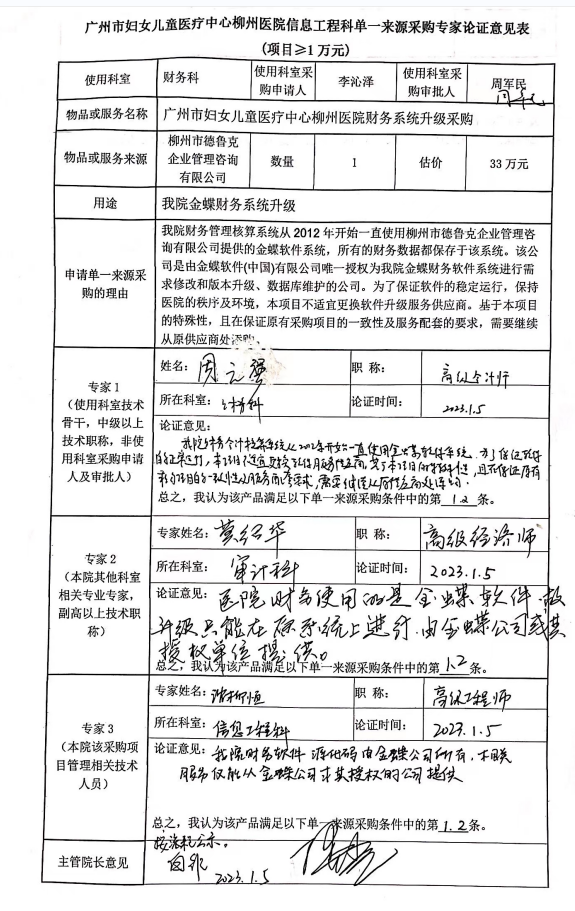 广州市妇女儿童医疗中心柳州医院信息工程科单一来源采购专家论证意见表
(项目≥1万元)
使用科室 财务科 使用科室采购申请人 李沁泽 使用科室采购审批人 周军民
物品或服务名称 广州市妇女儿童医疗中心柳州医院财务系统升级采购
物品或服务来源 柳州市德鲁克企业管理咨询有限公司 数量 1 估价 33万元
用途 我院金蝶财务系统升级
申请单一来源采购的理由
我院财务管理核算系统从2012年开始一直使用柳州市德鲁克企业管理咨
询有限公司提供的金蝶软件系统，所有的财务数据都保存于该系统。该公
司是由金蝶软件(中国)有限公司唯一授权为我院金蝶财务软件系统进行需
求修改和版本升级、数据库维护的公司。为了保证软件的稳定运行，保持
医院的秩序及环境，本项目不适宜更换软件升级服务供应商。基于本项目
的特殊性，且在保证原有采购项目的一致性及服务配套的要求，需要继续
从原供应商处添购。
专家1
（使用科室技术
骨干，中级以上
技术职称，非使
用科室采购申请
人及审批人）
姓名： 职称： 高级会计师
所在科室： 财务科 论证时间： 2023.1.5
论证意见：
总之，我认为该产品满足以下单一来源采购条件中的第1.2条。
专家2
（本院其他科室
相关专业专家，
副高以上技术职
称）
专家姓名： 职称： 高级经济师
所在科室： 审计科 论证时间： 2023.1.5
论证意见：医院财务使用的是金蝶软件，故
升级只能在原系统上进行，由金蝶公司或其
授权单位提供。
总之，我认为该产品满足以下单一来源采购条件中的第1.2条。
专家3
（本院该采购项
目管理相关技术
人员）
专家姓名： 职称： 高级工程师
所在科室： 信息工程科 论证时间： 2023.1.5
论证意见：我院财务软件源代码由金蝶公司所有，相关
服务仅能从金蝶公司或其授权的公司提供
总之，我认为该产品满足以下单一来源采购条件中的第1.2条。
主管院长意见
2023.1.5